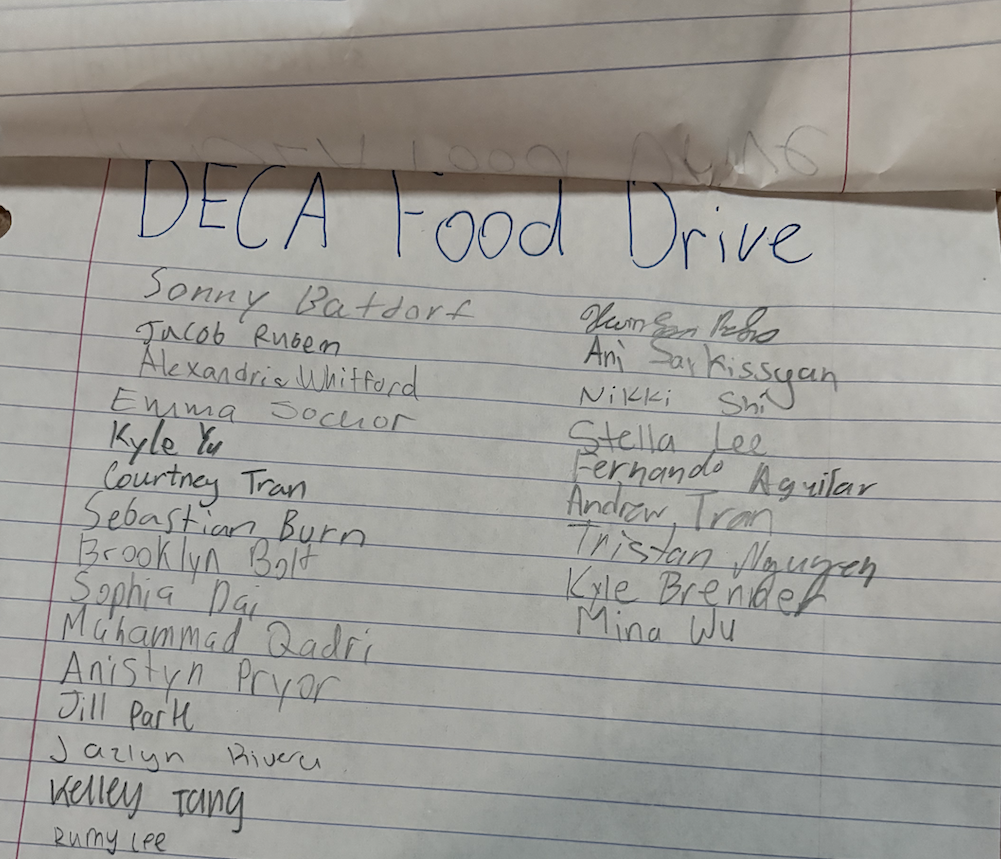 DECA Food Drive
Sonny Batdorf
Jacob Rubem
Alexandria Whitford
Emma Sochor
Kyle Yu
Courtney Tran
Sebastian Burn
Brooklyn Bolt
Sophia Dai
Muhammad Qadri
Anistyn Pryor
Jill Park
Jazlyn Rivera
Kelley Tang
Rumy Lee
Ani Sarkissyan
Nikki Shi
Stella Lee
Fernando Aguilar
Andrew Tran
Tristan Nguyen
Kyle Brender
Mina Wu